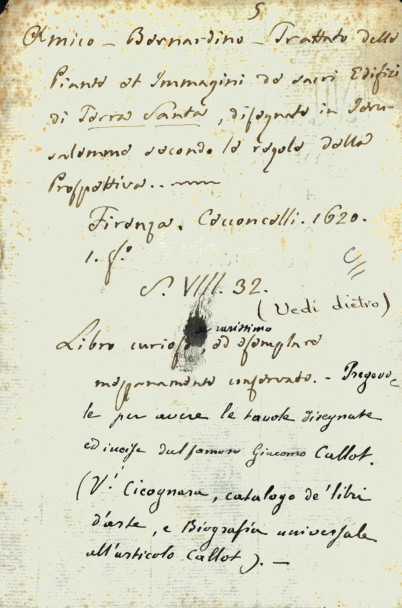 5
Amico - Bernardino - Trattato delle
Piante et Immagini de sacri Edifizi
di Terra Santa, disegnate in Jeru-
salemme secondo le regole della
Prospettiva..
Firenze. Cecconcelli. 1620.
1. f.º
S. VIII. 32.
(Vedi dietro)
e rarissimo
Libro curioso, ed esemplare
conservato. - Pregevo-
le per avere le tavole disegnate
ed incise dal famoso Giacomo Callot.
(V.i Cicognara, catalogo de' libri
d'arte, e Biografia universale
all'articolo Callot). -